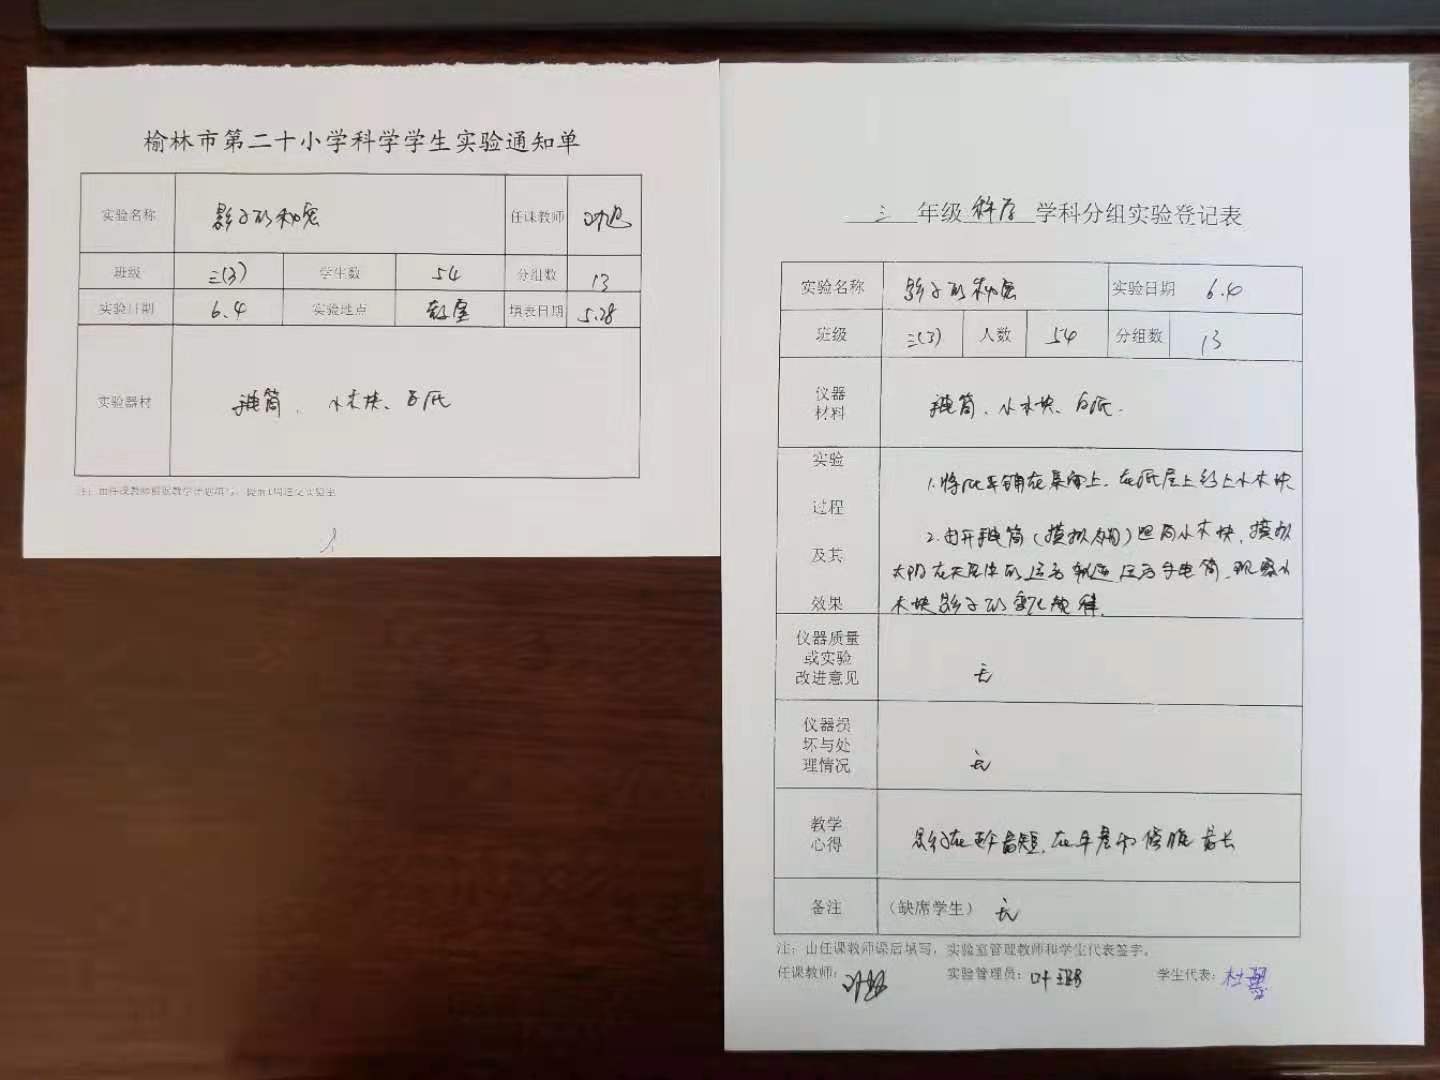 榆林市第二十小学科学学生实验通知单
实验名称 影子的秘密 任课教师
班级 三(3) 学生数 54 分组数 13
实验日期 6.4 实验地点 教室 填表日期 5.28
实验器材 手电筒、小木块、白纸
注：由任课教师根据教学计划填写，提前1周送交实验室
三 年级 科学 学科分组实验登记表
实验名称 影子的秘密 实验日期 6.4
班级 三(3) 人数 54 分组数 13
仪器
材料 手电筒、小木块、白纸.
实验
过程
及其
效果
1.将纸平铺在桌面上，在纸
上小木块
2.打开手电筒（模拟太阳）照向小木块，模拟
太阳在天
手电筒，观察小
木块影子的变化规律.
仪器质量
或实验
改进意见 无
仪器损
坏与处
理情况 无
教学
心得 影子在正午最短，在早晨和傍晚最长
备注 （缺席学生） 无
注：由任课教师课后填写，实验室管理教师和学生代表签字。
任课教师： 实验管理员： 学生代表：